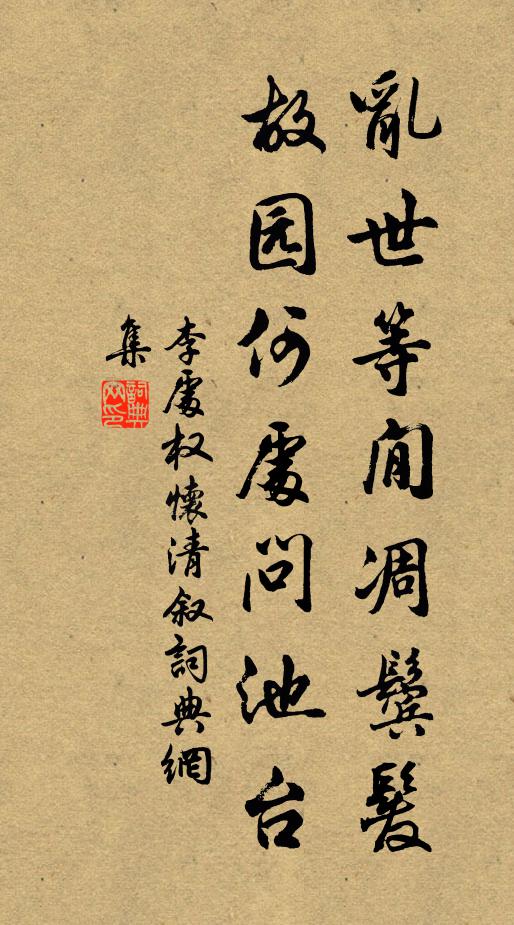 亂世等閒凋鬢髮
故园何處問池台
李處权懷清叙詞典網
集
詞典网印